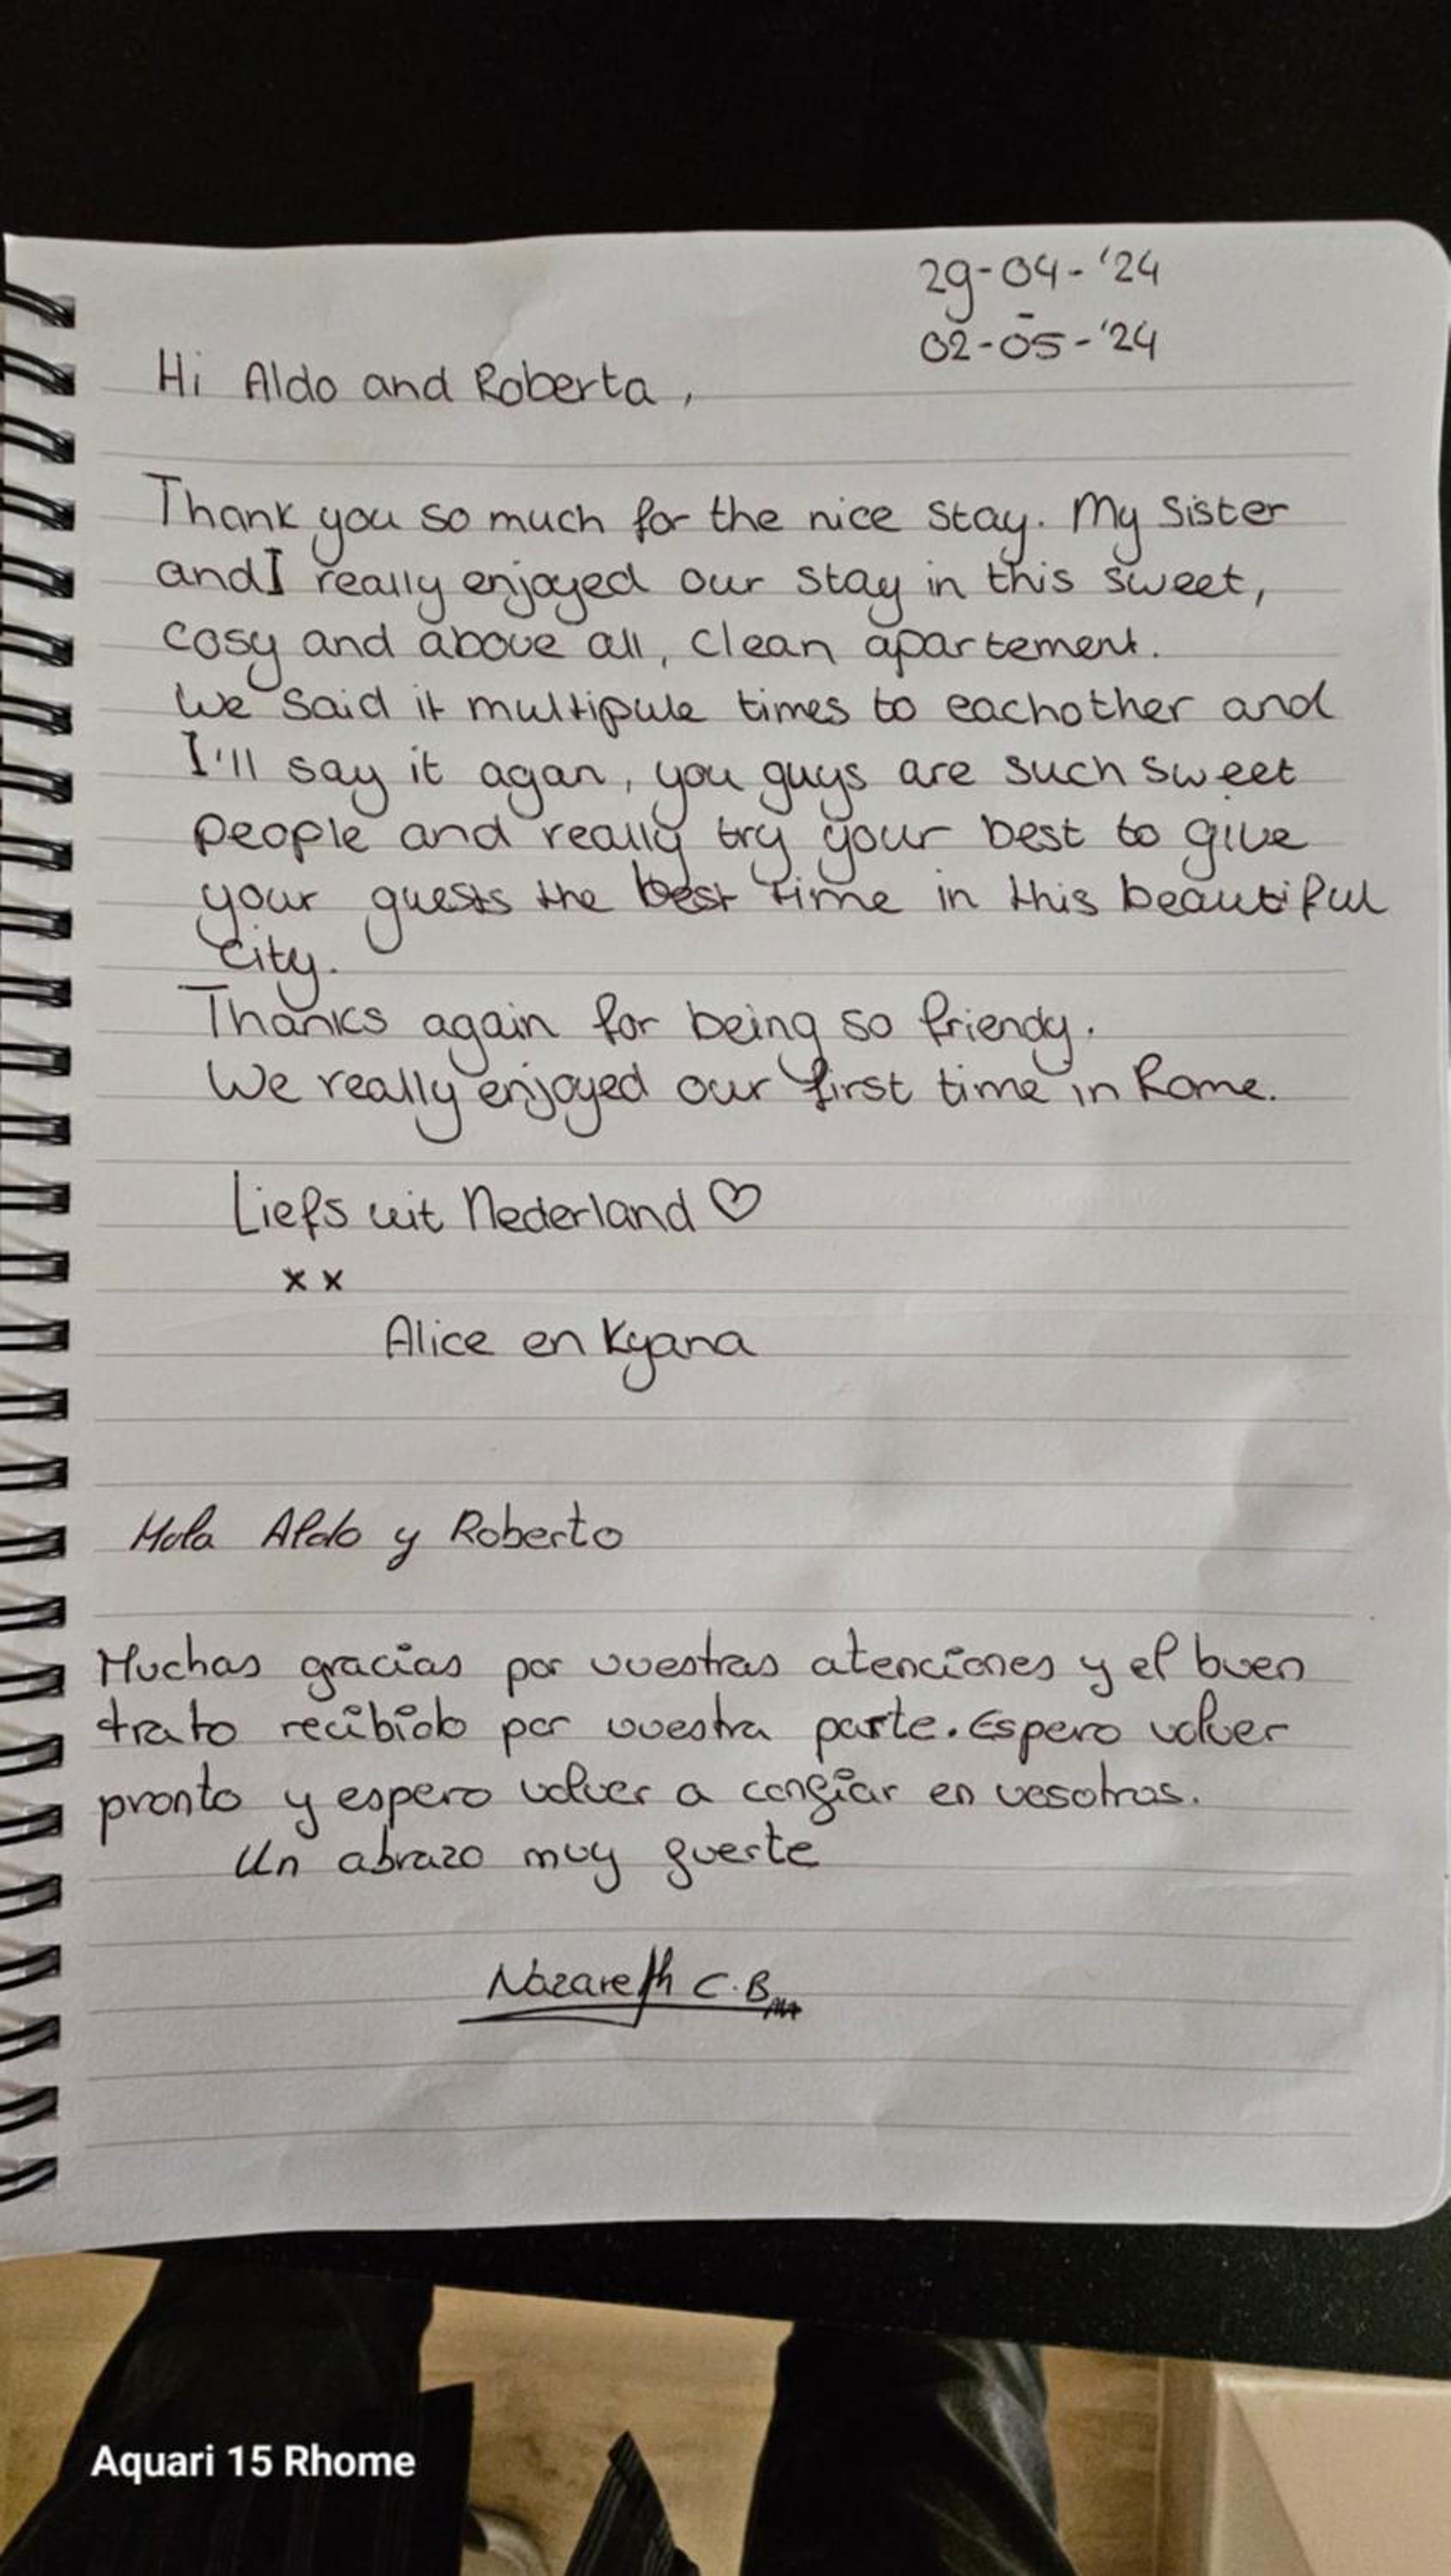 29-04-'24
-
02-05-'24
Hi Aldo and Roberta,
Thank you so much for the nice stay. My Sister
and I really enjoyed our stay in this sweet,
cosy and above all, clean apartement.
We said it multipule times to eachother and
I'll say it agan, you guys are such sweet
people and really try your best to give
your guests the best time in this beautiful
city.
Thanks again for being so friendy.
We really enjoyed our first time in Rome.
Liefs uit Nederland ♡
x x
Alice en Kyana
Hola Aldo y Roberto
Muchas gracias por vuestras atenciones y el buen
trato recibido por vuestra parte. Espero volver
pronto y espero volver a confiar en vosotros.
Un abrazo muy fuerte
Nazareth C.B
Aquari 15 Rhome